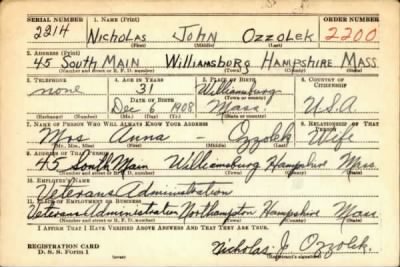 SERIAL NUMBER 1. NAME (Print) ORDER NUMBER
2214 NICHOLAS JOHN OZZOLEK 2200
(First) (Middle) (Last)
2. ADDRESS (Print)
45 SOUTH MAIN WILLIAMSBURG HAMPSHIRE MASS.
(Number and street or R. F. D. number) (Town) (County) (State)
3. TELEPHONE 4. AGE IN YEARS 5. PLACE OF BIRTH 6. COUNTRY OF CITIZENSHIP
none 31 Williamsburg
DATE OF BIRTH (Town or county)
Dec 6 1908 Mass. U.S.A
(Mo.) (Day) (Yr.) (State or country)
7. NAME OF PERSON WHO WILL ALWAYS KNOW YOUR ADDRESS 8. RELATIONSHIP OF THAT PERSON
Mrs Anna - Ozzolek Wife
(Mr., Mrs., Miss) (First) (Middle) (Last)
9. ADDRESS OF THAT PERSON
45 South Main Williamsburg Hampshire Mass
(Number and street or R. F. D. number) (Town) (County) (State)
10. EMPLOYER'S NAME
Veterans Administration
11. PLACE OF EMPLOYMENT OR BUSINESS
Veterans Administration Northampton Hampshire Mass
(Number and street or R. F. D. number) (Town) (County) (State)
I AFFIRM THAT I HAVE VERIFIED ABOVE ANSWERS AND THAT THEY ARE TRUE.
REGISTRATION CARD
D. S. S. Form 1
Nicholas J. Ozzolek.
(Registrant's signature)